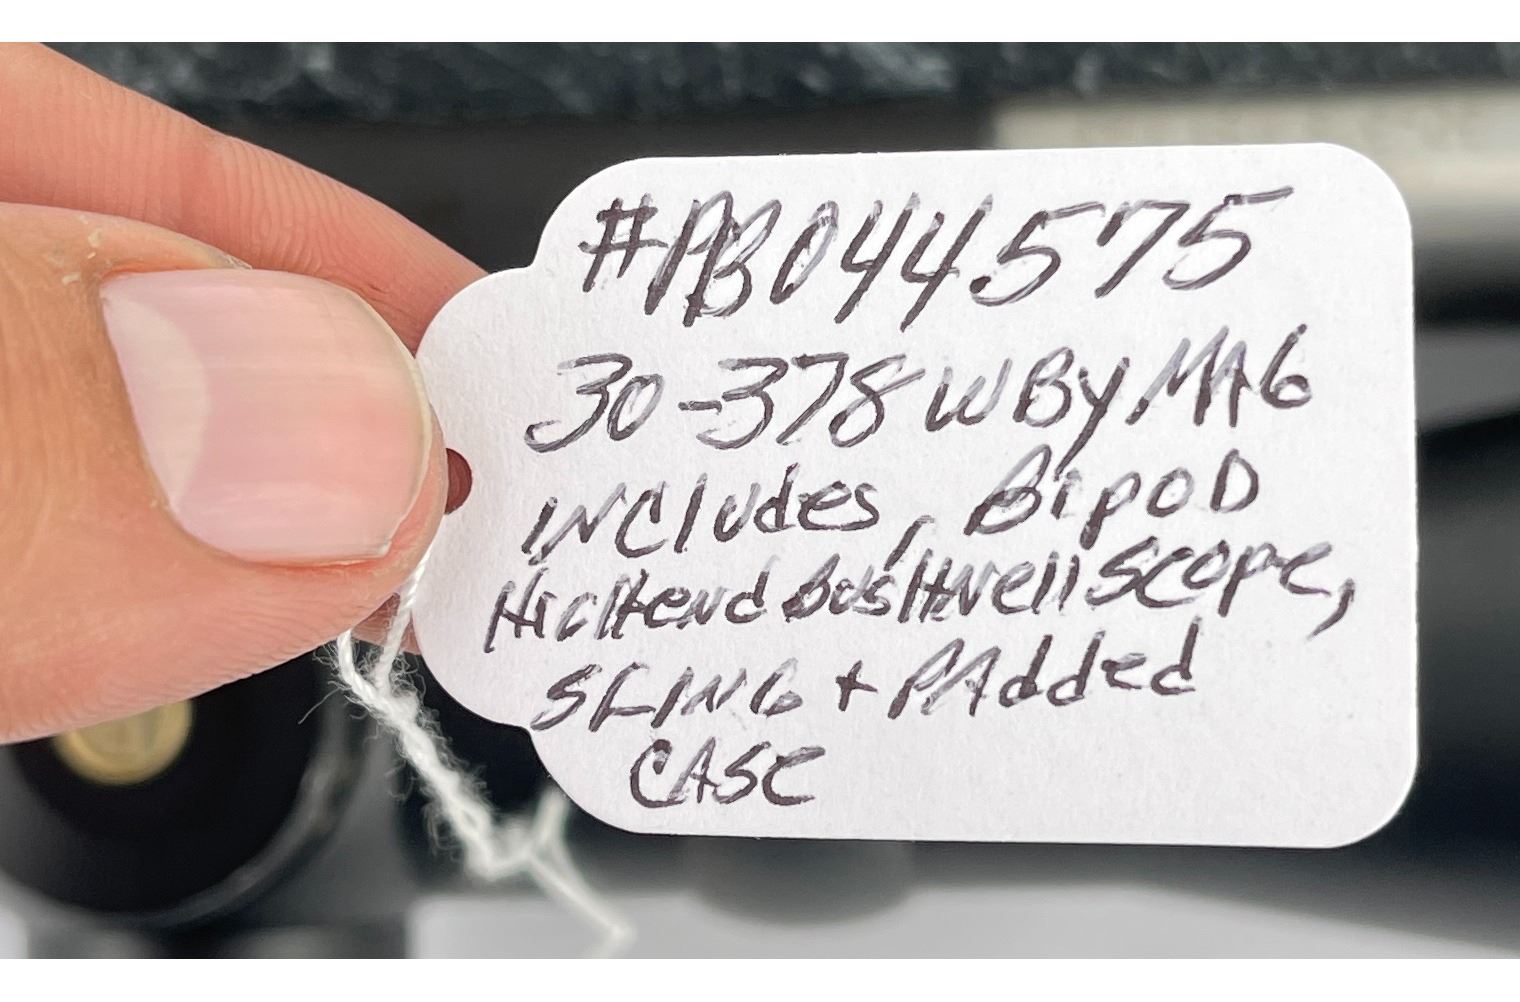 #PB044575
30-378 WBy.MAG
INCludes, BipoD
HIGHend BushNell SCOPE,
SLING + PAdded
CASE